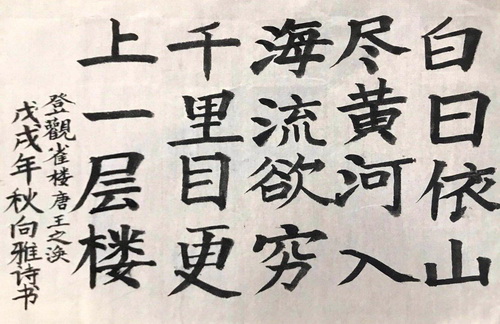 白日依山
尽黄河入
海流欲穷
千里目更
上一层楼
登觀雀楼唐王之涣
戊戌年秋向雅诗书